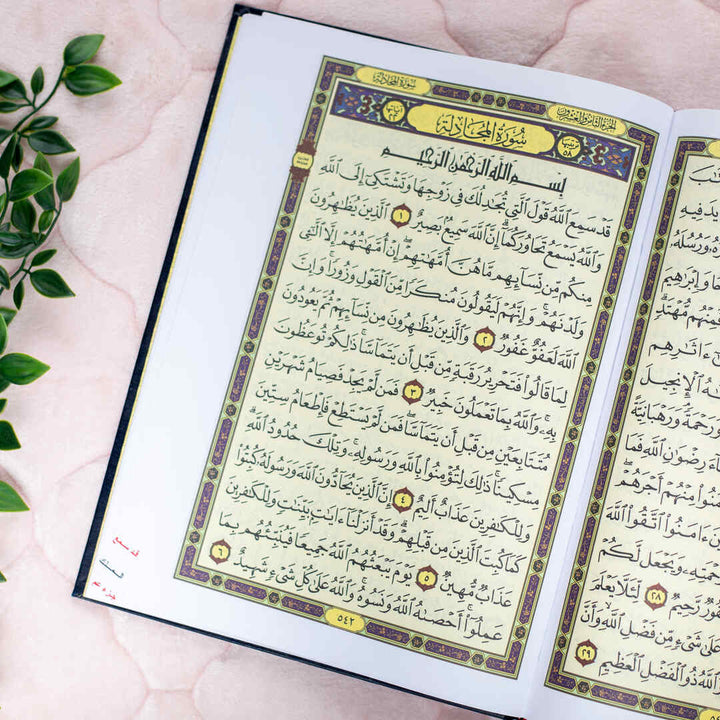 سُورَةُ المُجَادلة
الجزء الثامن والعشرون
آياتها ٢٢
سُورَةُ المُجَادلة
ترتيبها ٥٨
بِسْمِ ٱللَّهِ ٱلرَّحْمَٰنِ ٱلرَّحِيمِ
قَدْ سَمِعَ ٱللَّهُ قَوْلَ ٱلَّتِي تُجَٰدِلُكَ فِي زَوْجِهَا وَتَشْتَكِيٓ إِلَى ٱللَّهِ
وَٱللَّهُ يَسْمَعُ تَحَاوُرَكُمَآۚ إِنَّ ٱللَّهَ سَمِيعٌۢ بَصِيرٌ ١ ٱلَّذِينَ يُظَٰهِرُونَ
مِنكُم مِّن نِّسَآئِهِم مَّا هُنَّ أُمَّهَٰتِهِمْۖ إِنْ أُمَّهَٰتُهُمْ إِلَّا ٱلَّٰٓـِٔي
وَلَدْنَهُمْۚ وَإِنَّهُمْ لَيَقُولُونَ مُنكَرًا مِّنَ ٱلْقَوْلِ وَزُورًاۚ وَإِنَّ
ٱللَّهَ لَعَفُوٌّ غَفُورٌ ٢ وَٱلَّذِينَ يُظَٰهِرُونَ مِن نِّسَآئِهِمْ ثُمَّ يَعُودُونَ
لِمَا قَالُوا۟ فَتَحْرِيرُ رَقَبَةٍ مِّن قَبْلِ أَن يَتَمَآسَّاۚ ذَٰلِكُمْ تُوعَظُونَ
بِهِۦۚ وَٱللَّهُ بِمَا تَعْمَلُونَ خَبِيرٌ ٣ فَمَن لَّمْ يَجِدْ فَصِيَامُ شَهْرَيْنِ
مُتَتَابِعَيْنِ مِن قَبْلِ أَن يَتَمَآسَّاۖ فَمَن لَّمْ يَسْتَطِعْ فَإِطْعَامُ سِتِّينَ
مِسْكِينًاۚ ذَٰلِكَ لِتُؤْمِنُوا۟ بِٱللَّهِ وَرَسُولِهِۦۚ وَتِلْكَ حُدُودُ ٱللَّهِۗ
وَلِلْكَٰفِرِينَ عَذَابٌ أَلِيمٌ ٤ إِنَّ ٱلَّذِينَ يُحَآدُّونَ ٱللَّهَ وَرَسُولَهُۥ كُبِتُوا۟
كَمَا كُبِتَ ٱلَّذِينَ مِن قَبْلِهِمْۚ وَقَدْ أَنزَلْنَآ ءَايَٰتٍۭ بَيِّنَٰتٍۚ وَلِلْكَٰفِرِينَ
عَذَابٌ مُّهِينٌ ٥ يَوْمَ يَبْعَثُهُمُ ٱللَّهُ جَمِيعًا فَيُنَبِّئُهُم بِمَا
عَمِلُوٓا۟ۚ أَحْصَىٰهُ ٱللَّهُ وَنَسُوهُۚ وَٱللَّهُ عَلَىٰ كُلِّ شَىْءٍ شَهِيدٌ ٦
٥٤٢
قد سمع
وَرُسُلَهُۥ
وَإِبْرَٰهِيمَ
مُّهْتَدٍۖ
ءَاثَٰرِهِم
ٱلْإِنجِيلَ
رَحْمَةً وَرَهْبَانِيَّةً
رِضْوَٰنِ ٱللَّهِ فَمَا
مِنْهُمْ أَجْرَهُمْۖ
ءَامَنُوا۟ ٱتَّقُوا۟ ٱللَّهَ
وَيَجْعَل لَّكُمْ
رَّحِيمٌ ٢٨ لِّئَلَّا يَعْلَمَ
عَلَىٰ شَىْءٍ مِّن فَضْلِ ٱللَّهِۙ وَأَنَّ
وَٱللَّهُ ذُو ٱلْفَضْلِ ٱلْعَظِيمِ ٢٩